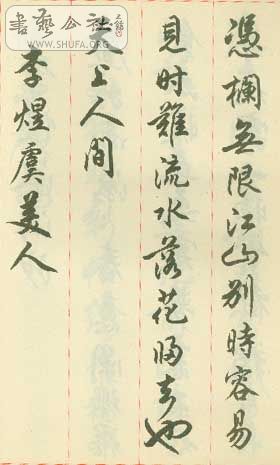 憑欄無限江山別時容易
見时難流水落花歸去也
天上人間
李煜虞美人
書藝公社
WWW.SHUFA.ORG